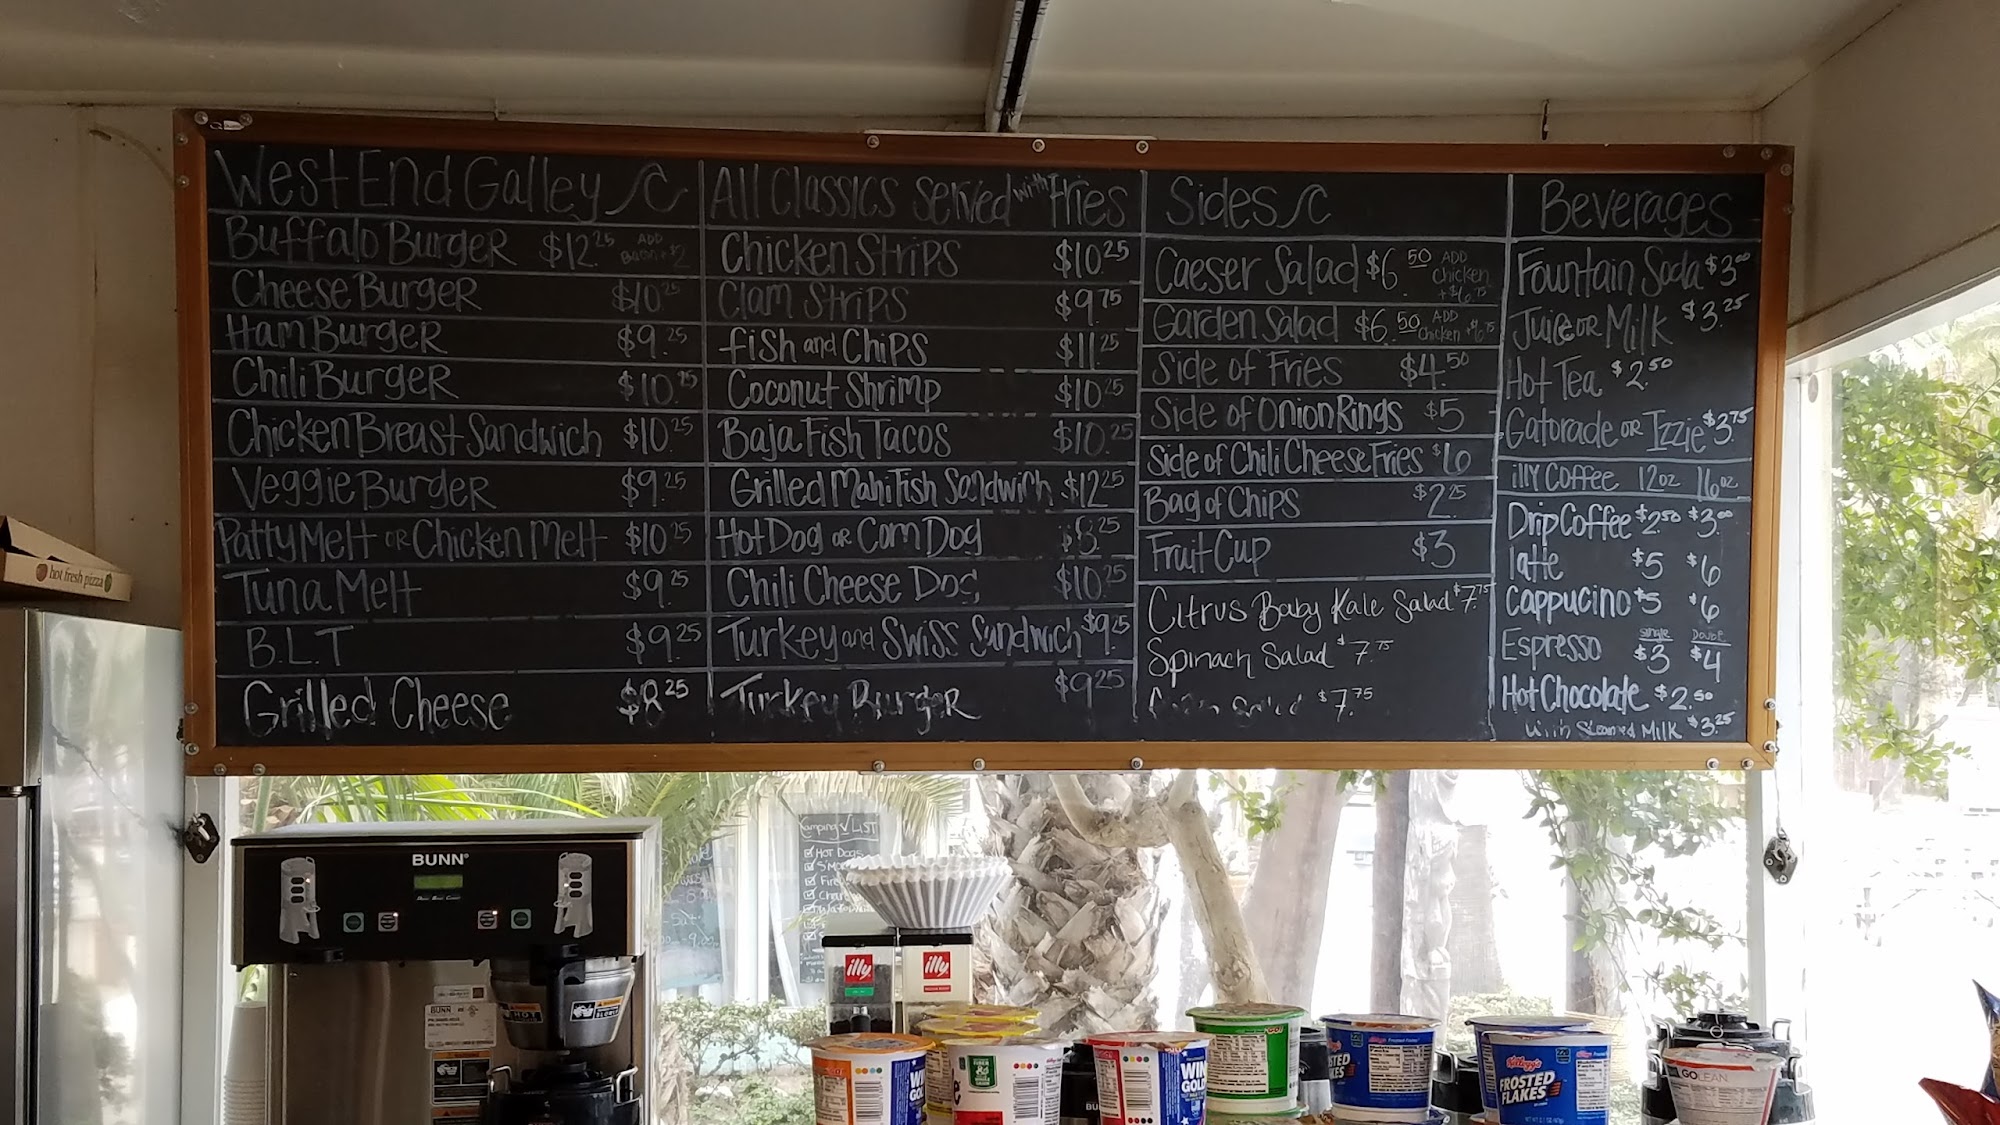 West End Galley
Buffalo Burger $12.25 ADD Bacon + $2
Cheese Burger $10.25
Ham Burger $9.25
Chili Burger $10.25
Chicken Breast Sandwich $10.25
Veggie Burger $9.25
Patty Melt OR Chicken Melt $10.25
Tuna Melt $9.25
B.L.T $9.25
Grilled Cheese $8.25
All Classics Served with Fries
Chicken Strips $10.25
Clam Strips $9.75
Fish and Chips $11.25
Coconut Shrimp $10.25
Baja Fish Tacos $10.25
Grilled Mahi Fish Sandwich $12.25
Hot Dog OR Corn Dog $8.25
Chili Cheese Dog $10.25
Turkey and Swiss Sandwich $9.25
Turkey Burger $9.25
Sides
Caeser Salad $6.50 ADD Chicken + $6.75
Garden Salad $6.50 ADD Chicken + $6.75
Side of Fries $4.50
Side of Onion Rings $5
Side of Chili Cheese Fries $6
Bag of Chips $2.25
Fruit Cup $3
Citrus Baby Kale Salad $7.75
Spinach Salad $7.75
Salad $7.75
Beverages
Fountain Soda $3.00
Juice OR Milk $3.25
Hot Tea $2.50
Gatorade OR Izzie $3.75
illy Coffee 12oz 16oz
Drip Coffee $2.50 $3.00
latte $5 $6
Cappucino $5 $6
Single Double
Espresso $3 $4
Hot Chocolate $2.50
with Steamed Milk $3.25
hot fresh pizza
BUNN
Camping LIST
HOT Dogs
illy
illy
BUNN
HOT
Kellogg's
FROSTED FLAKES
GOLEAN
WIN GOLD